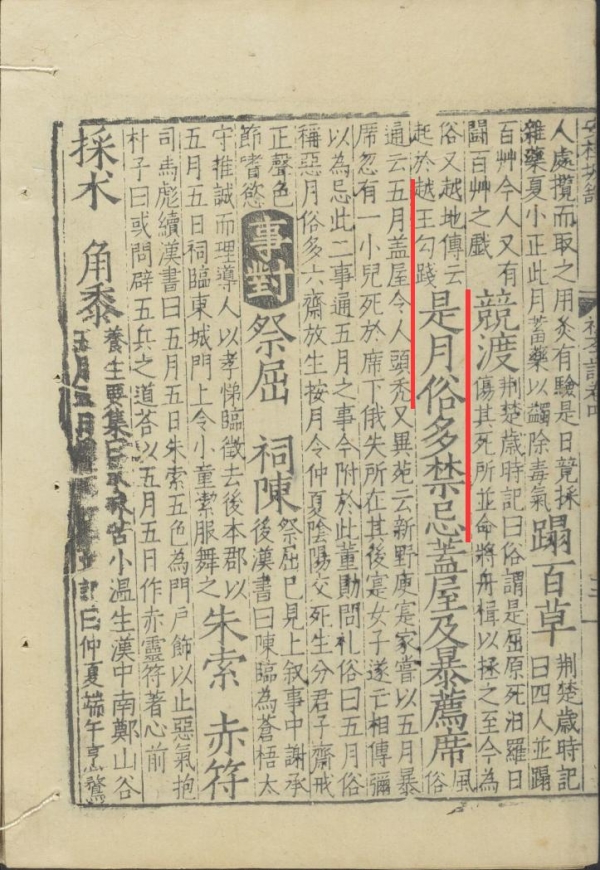 人處攬而取之用灸有驗是日競採
雜藥夏小正此月蓄藥以蠲除毒氣
蹋百草
荊楚歲時記
曰四人並蹋
百艸今人又有
鬪百艸之戲
競渡
荊楚歲時記曰俗謂是屈原死汨羅日
傷其死所並命將舟檝以拯之至今為
俗又越地傳云
起於越王勾踐
是月俗多禁忌蓋屋及暴薦席
風
俗
通云五月盖屋令人頭禿又異苑云新野庾寔家嘗以五月暴
席忽有一小兒死於席下俄失所在其後寔女子遂亡相傳彌
以為忌此二事通五月之事今附於此董勛問礼俗曰五月俗
稱惡月俗多六齋放生按月令仲夏陰陽交死生分君子齋戒
正聲色
節嗜慾
事對
祭屈 祠陳
祭屈已見上叙事中謝承
後漢書曰陳臨為蒼梧太
守推誠而理導人以孝悌臨徵去後本郡以
五月五日祠臨東城門上令小童潔服舞之
朱索 赤符
司馬彪續漢書曰五月五日朱索五色為門戶飾以止惡氣抱
朴子曰或問辟五兵之道荅以五月五日作赤靈符著心前
採朮 角黍
養生要集曰朮味苦小温生漢中南鄭山谷
五月五日記曰仲夏端午烹鶩